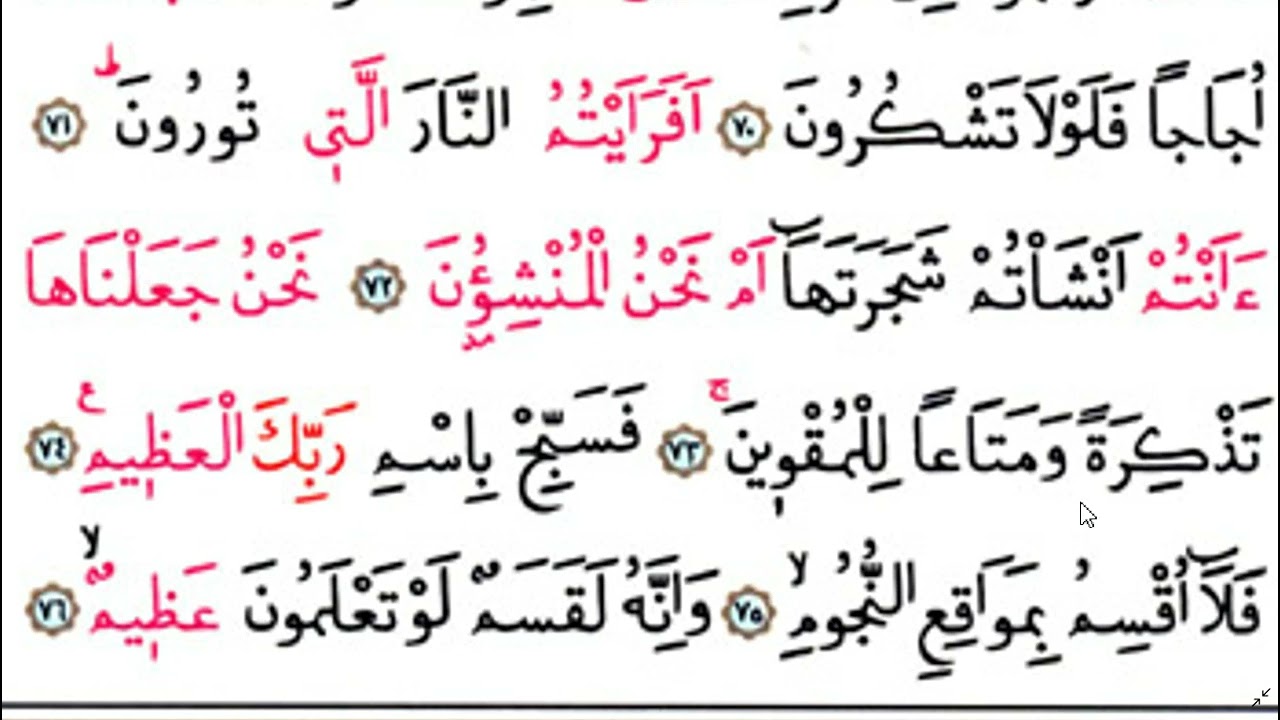 اُجَاجاً فَلَوْلَا تَشْكُرُونَ ﴿٧٠﴾ اَفَرَاَيْتُمُ النَّارَ الَّتٖي تُورُونَ ط ﴿٧١﴾
ءَاَنْتُمْ اَنْشَأْتُمْ شَجَرَتَهَٓا اَمْ نَحْنُ الْمُنْشِؤُ۫نَ ﴿٧٢﴾ نَحْنُ جَعَلْنَاهَا
تَذْكِرَةً وَمَتَاعاً لِلْمُقْوٖينَ ج ﴿٧٣﴾ فَسَبِّحْ بِاسْمِ رَبِّكَ الْعَظٖيمِ ع ﴿٧٤﴾
فَلَٓا اُقْسِمُ بِمَوَاقِعِ النُّجُومِ لا ﴿٧٥﴾ وَاِنَّهُ لَقَسَمٌ لَوْ تَعْلَمُونَ عَظٖيمٌ لا ﴿٧٦﴾